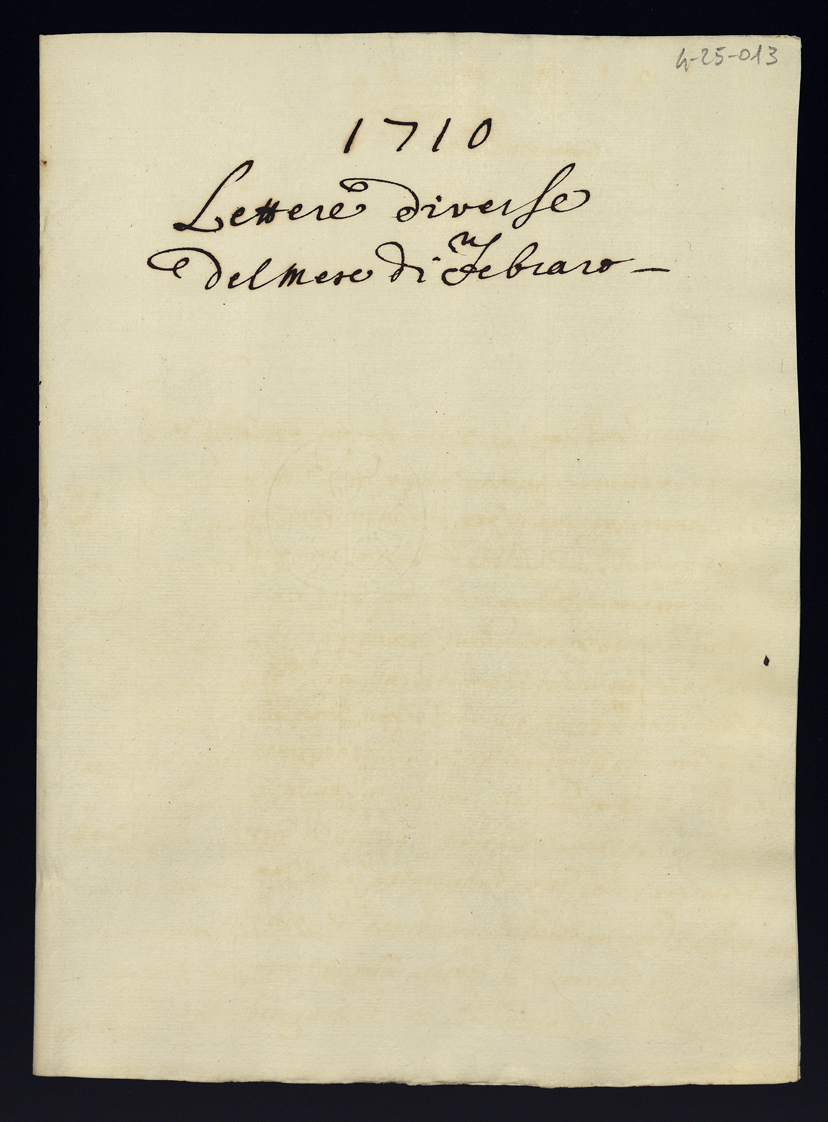 4-25-013
1710
Lettere diverse
Del mese di Febraro –